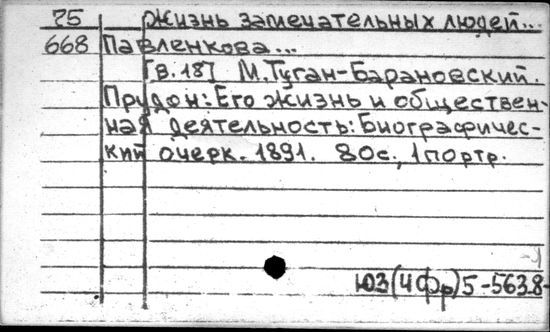 75 Жизнь замечательных людей...
668 Павленкова...
[в.18] М.Туган-Барановский.
Прудон: Его жизнь и обществен-
ная деятельность: Биографичес-
кий очерк. 1891. 80с., 1портр.
ЮЗ(4Фр)5-563.8